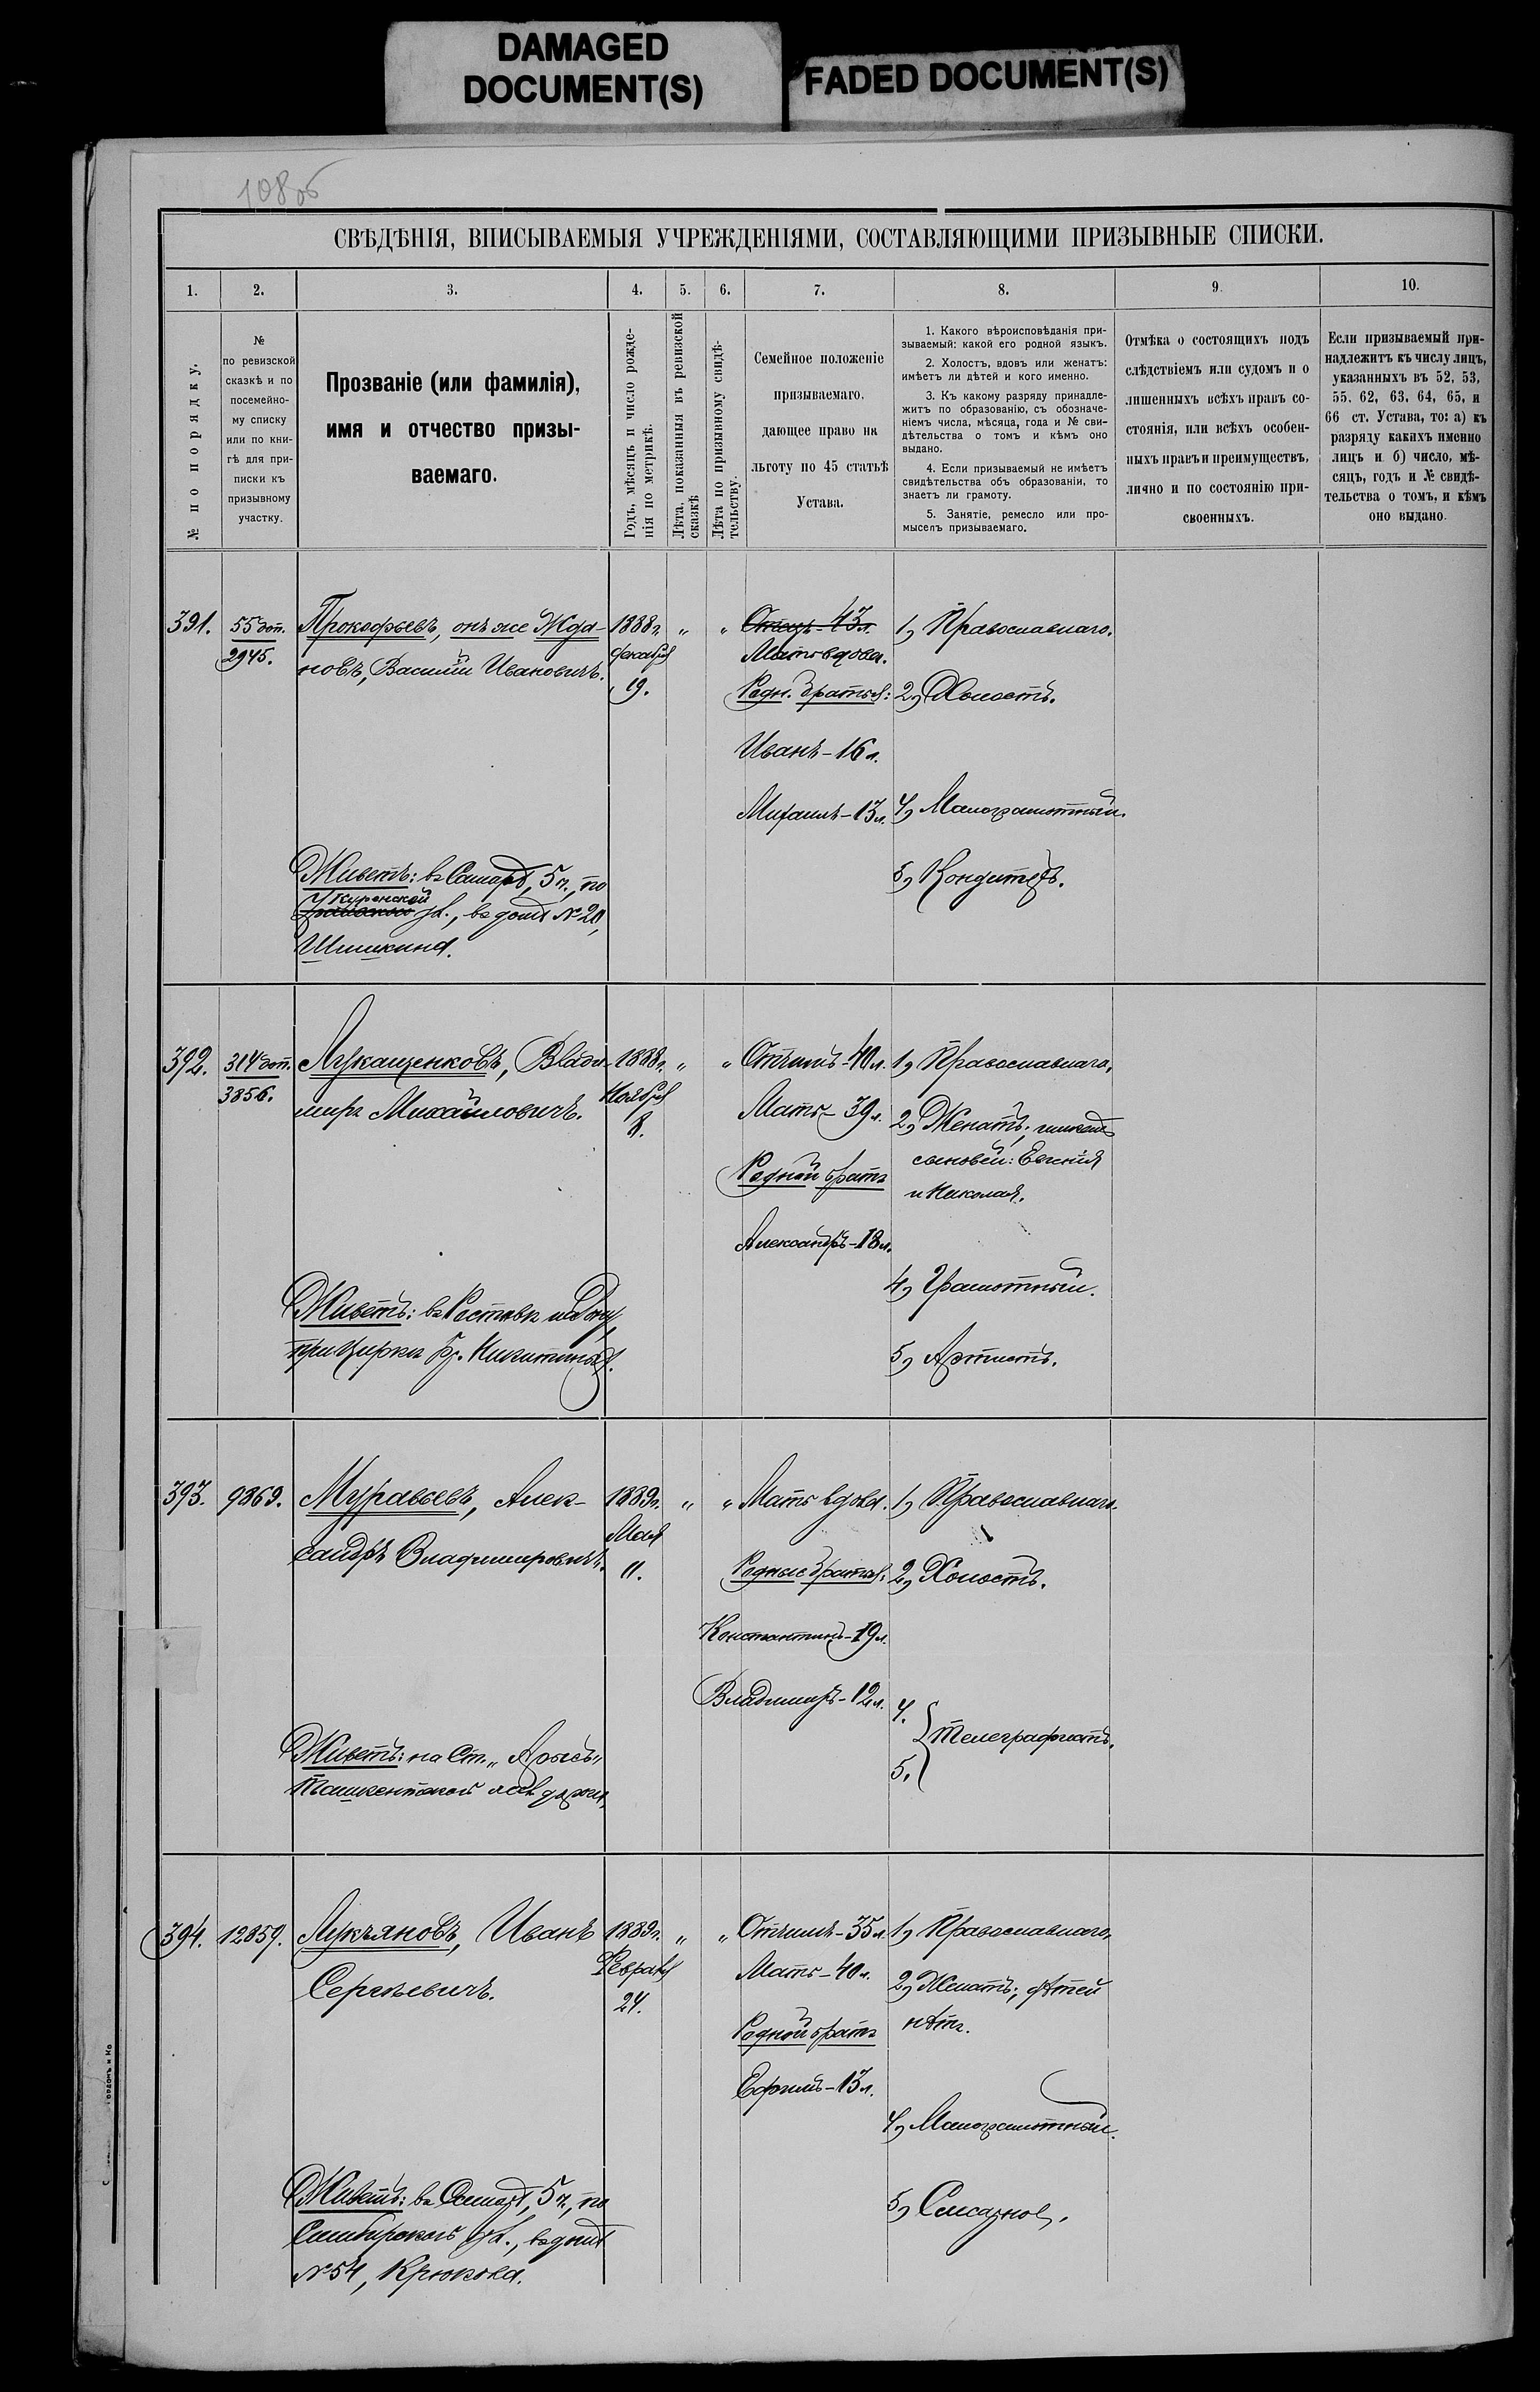 DAMAGED
DOCUMENT(S)
FADED DOCUMENT(S)
108 об
СВѢДѢНІЯ, ВПИСЫВАЕМЫЯ УЧРЕЖДЕНІЯМИ, СОСТАВЛЯЮЩИМИ ПРИЗЫВНЫЕ СПИСКИ.
1. 2. 3. 4. 5. 6. 7. 8. 9. 10.
№ по порядку.
№
по ревизской
сказкѣ и по
посемейно-
му списку
или по кни-
гѣ для при-
писки къ
призывному
участку.
Прозваніе (или фамилія),
имя и отчество призы-
ваемаго.
Годъ, мѣсяцъ и число рожде-
нія по метрикѣ.
Лѣта, показанныя въ ревизской
сказкѣ
Лѣта по призывному свидѣ-
тельству.
Семейное положеніе
призываемаго,
дающее право на
льготу по 45 статьѣ
Устава.
1. Какого вѣроисповѣданія при-
зываемый: какой его родной языкъ.
2. Холостъ, вдовъ или женатъ:
имѣетъ ли дѣтей и кого именно.
3. Къ какому разряду принадле-
житъ по образованію, съ обозначе-
ніемъ числа, мѣсяца, года и № сви-
дѣтельства о томъ и кѣмъ оно
выдано.
4. Если призываемый не имѣетъ
свидѣтельства объ образованіи, то
знаетъ ли грамоту.
5. Занятіе, ремесло или про-
мыселъ призываемаго.
Отмѣка о состоящихъ подъ
слѣдствіемъ или судомъ и о
лишенныхъ всѣхъ правъ со-
стоянія, или всѣхъ особен-
ныхъ правъ и преимуществъ,
лично и по состоянію при-
своенныхъ.
Если призываемый при-
надлежитъ къ числу лицъ,
указанныхъ въ 52, 53,
55, 62, 63, 64, 65, и
66 ст. Устава, то: а) къ
разряду какихъ именно
лицъ и б) число, мѣ-
сяцъ, годъ и № свидѣ-
тельства о томъ, и кѣмъ
оно выдано.
391.
55 доп.
2945.
Прокофьевъ, онъ же Жда-
новъ, Василій Ивановичъ.
1888 г.
Декабря
19.
" "
Отецъ - 43 л.
Мать вдова.
Родн. братья:
Иванъ - 16 л.
Михаилъ - 13 л.
1, Православнаго.
2, Холостъ.
4, Малограмотный.
5, Кондитеръ.
Живетъ: въ Самарѣ, 5 ч., по
Укуренской
ул., въ домѣ № 20,
Шишкина.
392.
314 доп.
3856.
Лукащенковъ, Влади-
миръ Михайловичъ.
1888 г.
Ноября
8.
" "
Отчимъ - 40 л.
Мать - 39 л.
Родной братъ
Александръ - 18 л.
1, Православнаго,
2, Женатъ; имѣетъ
сыновей: Евгенія
и Николая.
4, Грамотный.
5, Артистъ.
Живетъ: въ Ростовѣ на Дону,
при циркѣ бр. Никитиныхъ.
393.
9869.
Муравьевъ, Алек-
сандръ Владимировичъ.
1889 г.
Мая
11.
" "
Мать вдова.
Родные братья:
Константинъ - 19 л.
Владимиръ - 12 л.
1, Православнаго.
2, Холостъ.
4.
5. Телеграфистъ.
Живетъ: на Ст. „Арысь“
Ташкентской жел. дороги.
394.
12859.
Лукъяновъ, Иванъ
Сергѣевичъ.
1889 г.
Февраля
24.
" "
Отчимъ - 35 л.
Мать - 40 л.
Родной братъ
Ефимъ - 13 л.
1, Православнаго,
2, Женатъ; дѣтей
нѣтъ.
4, Малограмотный.
5, Слесарное.
Живетъ: въ Самарѣ, 5 ч., по
Симбирской ул., въ домѣ
№ 54, Крюкова.